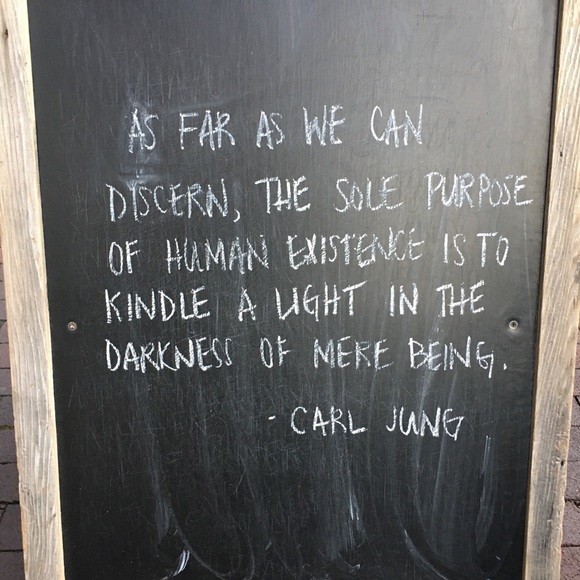 AS FAR AS WE CAN
DISCERN, THE SOLE PURPOSE
OF HUMAN EXISTENCE IS TO
KINDLE A LIGHT IN THE
DARKNESS OF MERE BEING.
- CARL JUNG